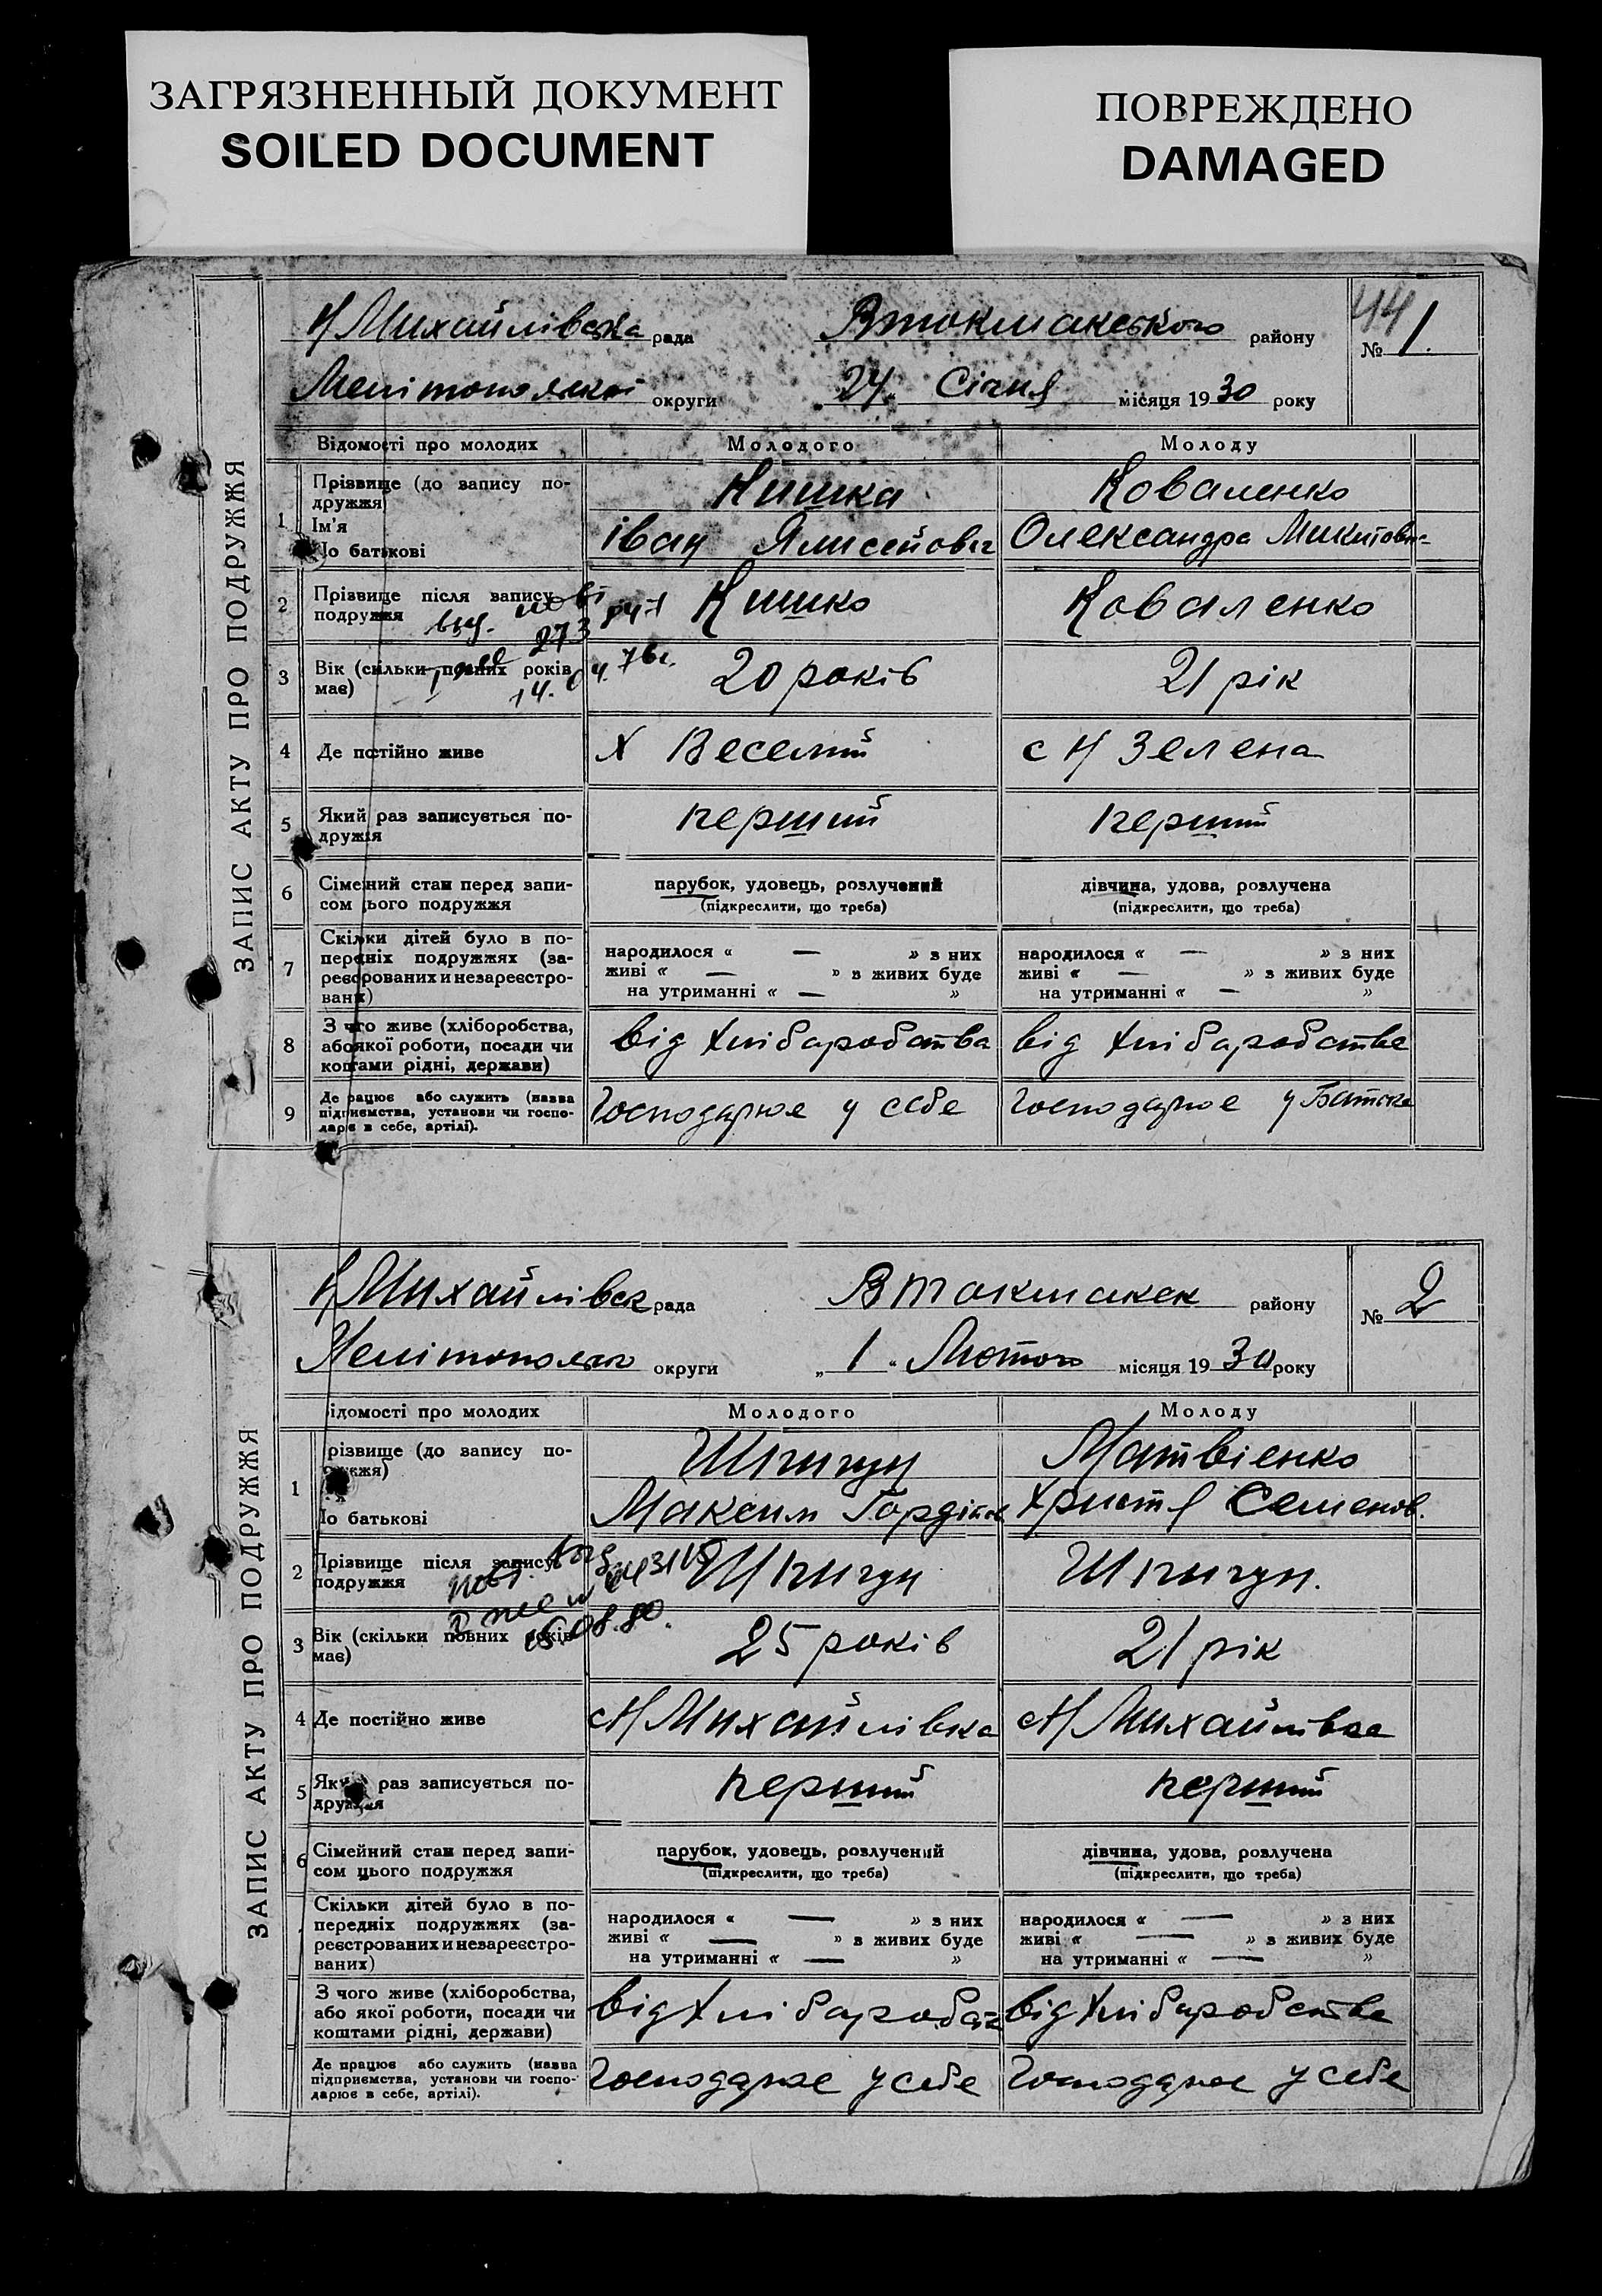 ЗАГРЯЗНЕННЫЙ ДОКУМЕНТ
SOILED DOCUMENT
ПОВРЕЖДЕНО
DAMAGED
ЗАПИС АКТУ ПРО ПОДРУЖЖЯ
Н Михайлівська рада Втокмакського району № 1.
44
Мелітопольскої округи „24“ Січня місяця 1930 року
Відомості про молодих Молодого Молоду
1 Прізвище (до запису по-
дружжя)
Кишка Коваленко
Ім'я
По батькові
Іван Олександра Микитовн-
2 Прізвище після запису
подружжя
Кишко Коваленко
273
3 Вік (скільки повних років
має)
20 років 21 рік
14.04.76г.
4 Де постійно живе Х Веселий с Н Зелена
5 Який раз записується по-
дружжя
перший перший
6 Сімейний стан перед запи-
сом цього подружжя
парубок, удовець, розлучений дівчина, удова, розлучена
(підкреслити, що треба) (підкреслити, що треба)
7 Скільки дітей було в по-
передніх подружжях (за-
реєстрованих и незареєстро-
ваних)
народилося « — » з них народилося « — » з них
живі « — » з живих буде живі « — » з живих буде
на утриманні « — » на утриманні « — »
8 З чого живе (хліборобства,
або якої роботи, посади чи
коштами рідні, держави)
від хлібаробства від хлібаробства
9 Де працює або служить (назва
підприємства, установи чи госпо-
дарює в себе, артілі).
Господарює у себе Господарює у Батька
ЗАПИС АКТУ ПРО ПОДРУЖЖЯ
Н Михайлівск рада Втокмакск району № 2
Мелітопольско округи „1“ Лютого місяця 1930 року
Відомості про молодих Молодого Молоду
1 Прізвище (до запису по-
дружжя)
Шпигун Матвіенко
По батькові
Максим Гордіїов Христя Семенов.
2 Прізвище після запису
подружжя
Шпигун Шпигун.
3 Вік (скільки повних років
має)
25 років 21 рік
15.08.80.
4 Де постійно живе с Н Михайлівка с Н Михайлівка
5 Який раз записується по-
дружжя
перший перший
6 Сімейний стан перед запи-
сом цього подружжя
парубок, удовець, розлучений дівчина, удова, розлучена
(підкреслити, що треба) (підкреслити, що треба)
Скільки дітей було в по-
передніх подружжях (за-
реєстрованих и незареєстро-
ваних)
народилося « — » з них народилося « — » з них
живі « — » з живих буде живі « — » з живих буде
на утриманні « — » на утриманні « — »
З чого живе (хліборобства,
або якої роботи, посади чи
коштами рідні, держави)
від хлібаробст від хлібаробства
Де працює або служить (назва
підприємства, установи чи госпо-
дарює в себе, артілі).
Господарює у себе Господарює у себе